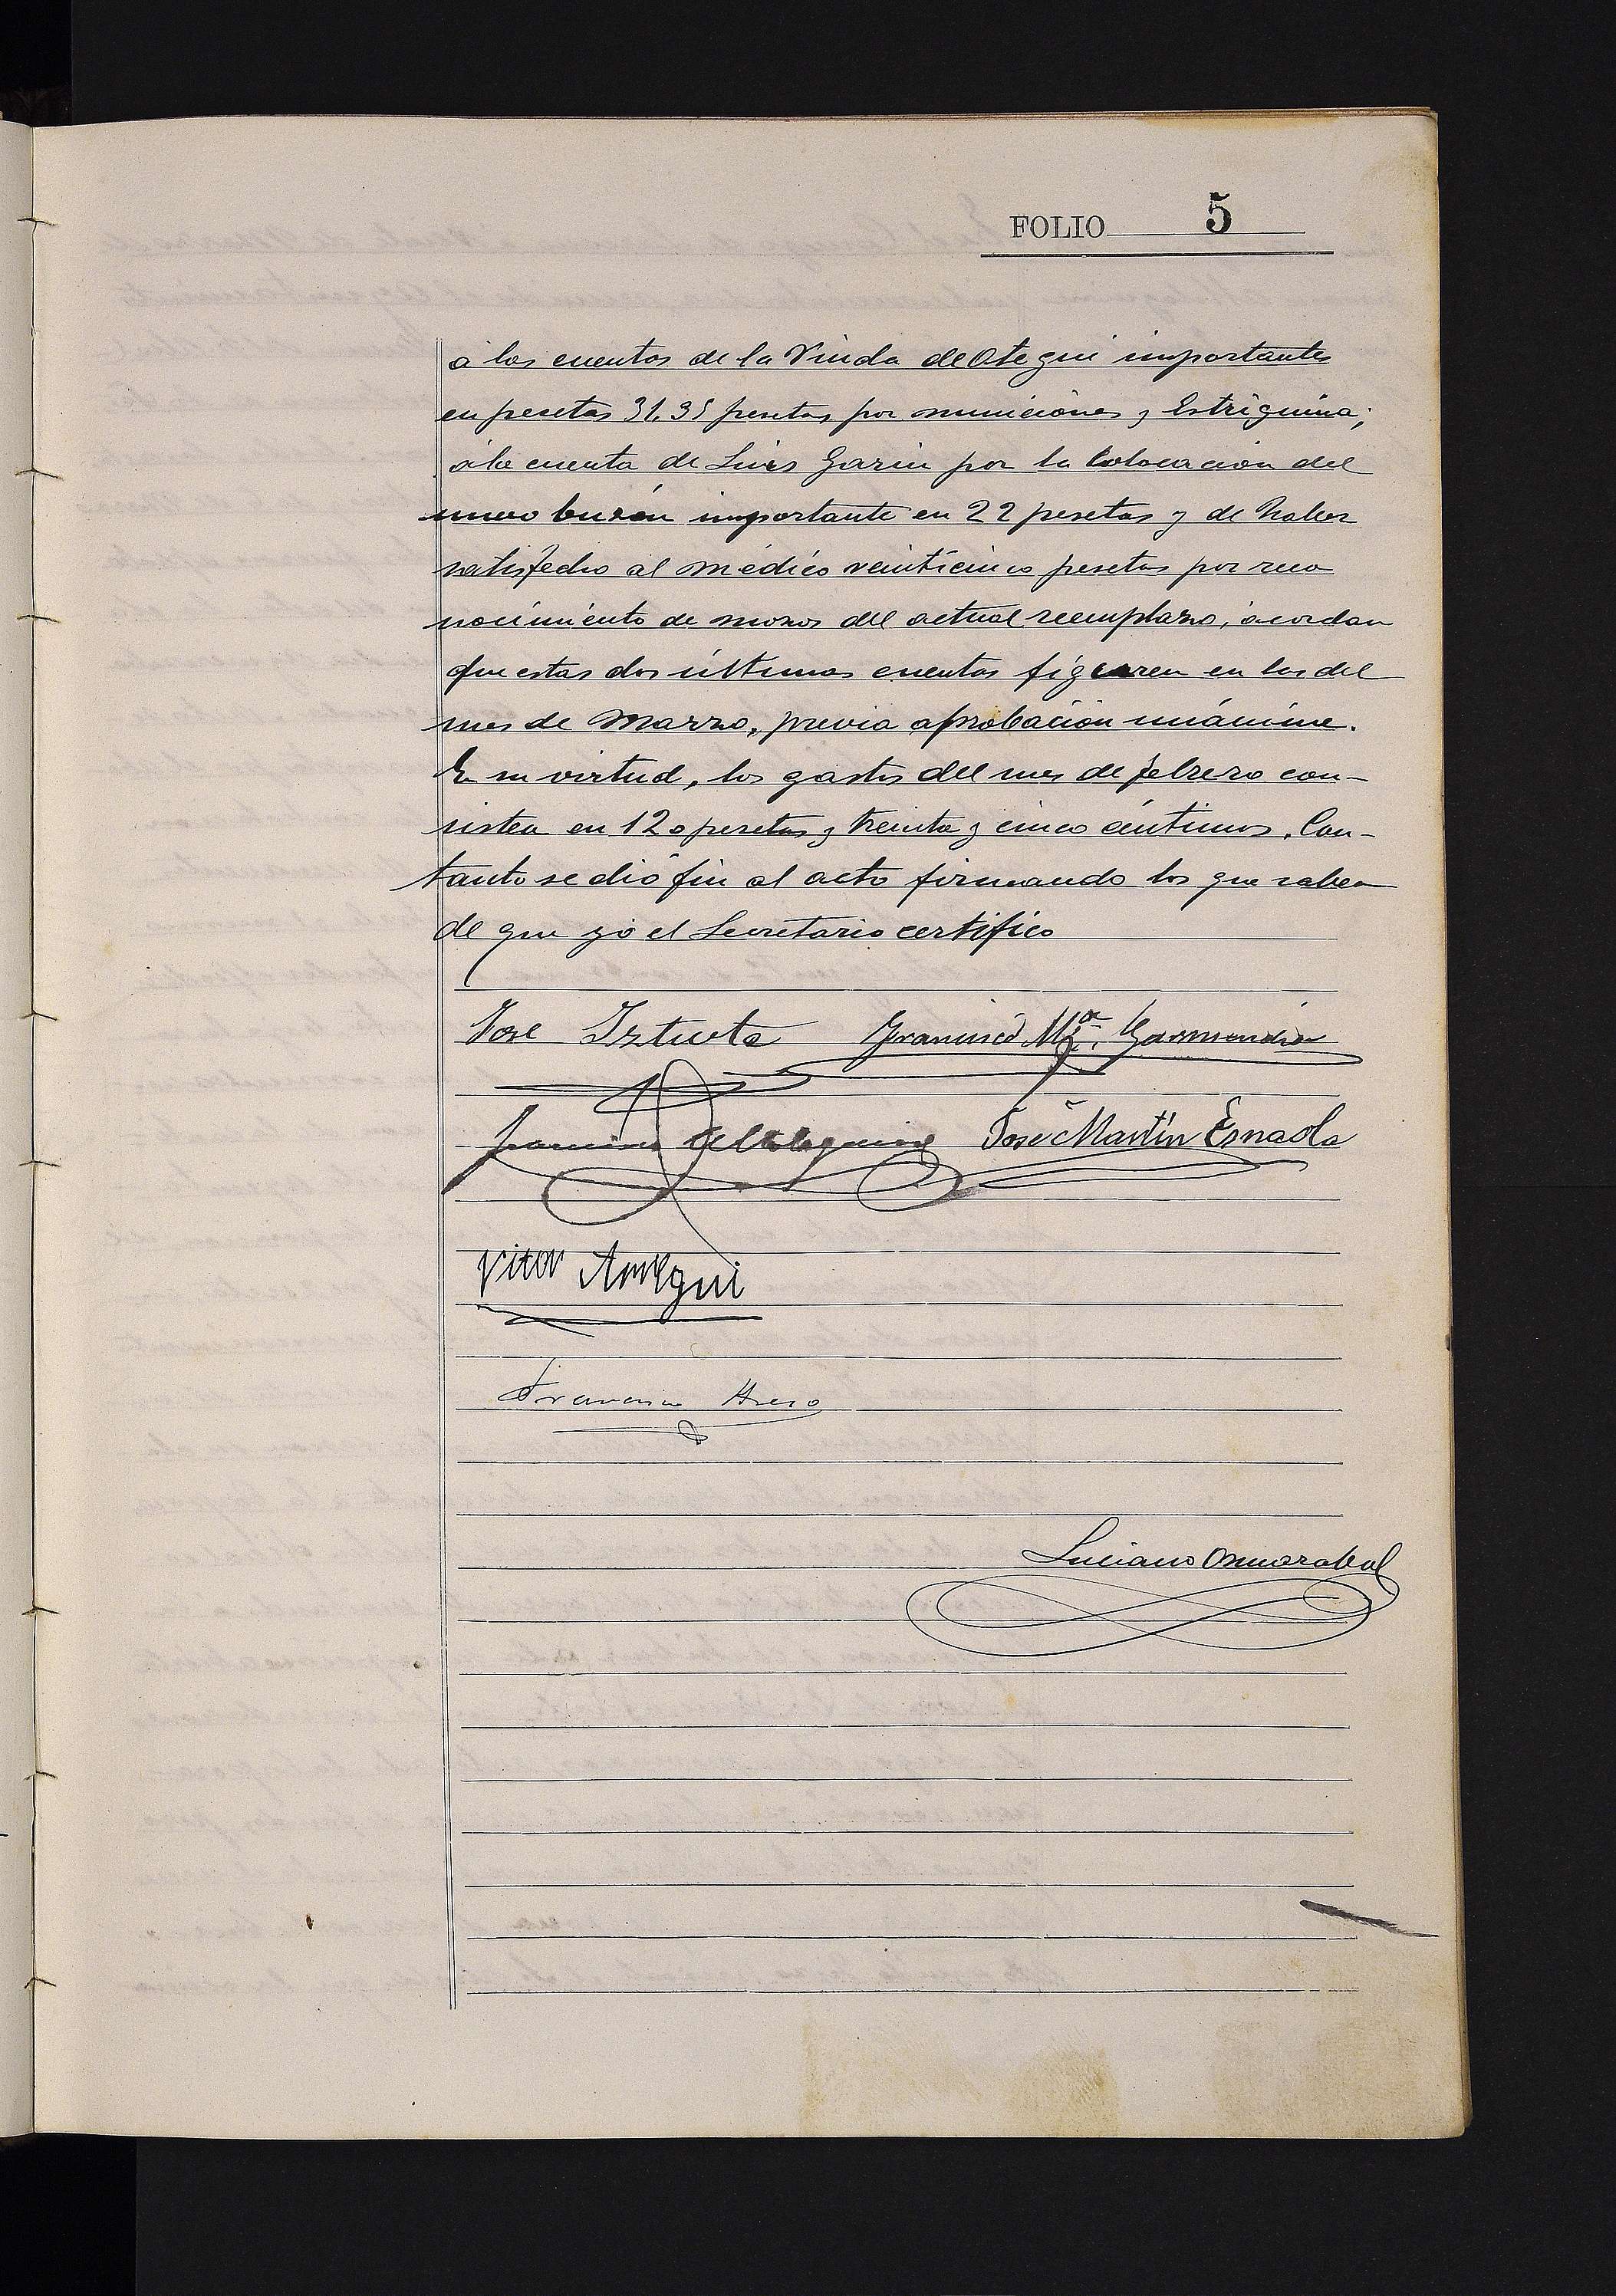 FOLIO 5
á las cuentas de la Viuda de Otegui importantes
en pesetas 31,35 pesetas por municiones y Estriguina;
á la cuenta de Luis Garin por la colocacion del
nuevo buzón importante en 22 pesetas y de haber
satisfecho al médico veinticinco pesetas por reco
nocimiento de mozos del actual reemplazo, acordan
que estas dos últimas cuentas figuren en las del
mes de Marzo, previa aprobación unánime.
En su virtud, los gastos del mes de febrero con-
sisten en 120 pesetas y treinta y cinco céntimos. Con-
tanto se dió fin al acto firmando los que saben
de que yo el Secretario certifico
José Iztueta Francisco Mª. Garmendia
Francisco Altolaguirre José Martín Esnaola
Vitor
Francisco
Luciano